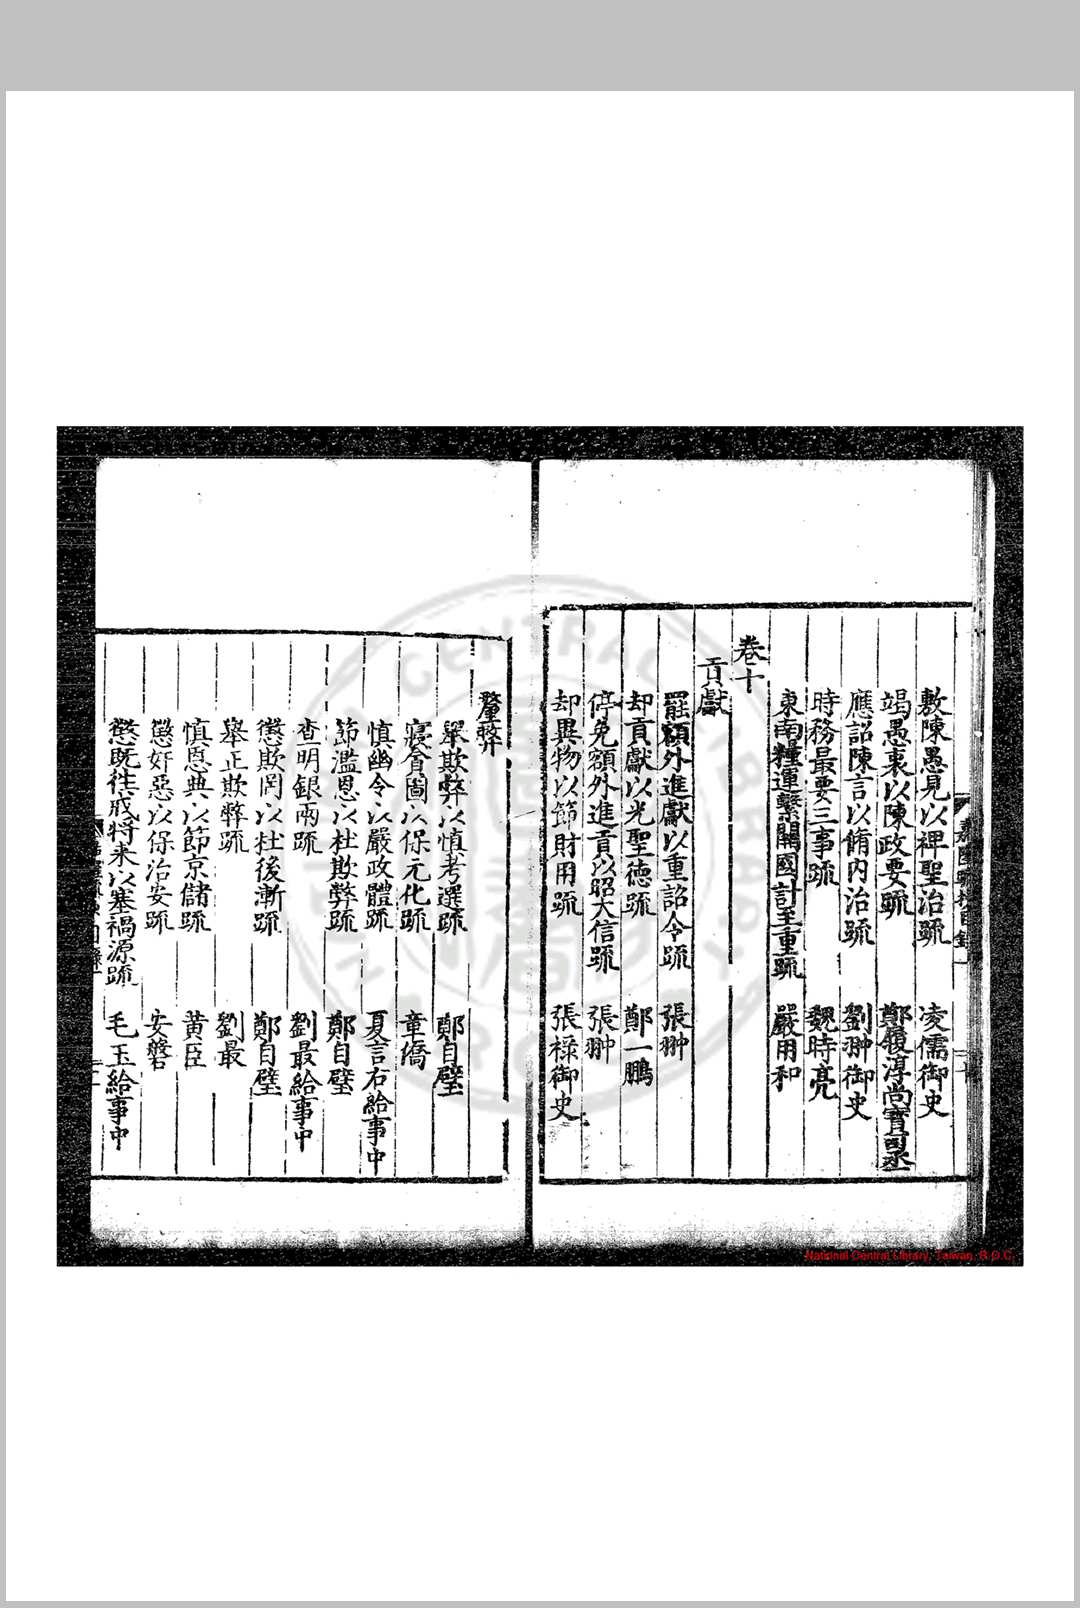 敷陳愚見以裨聖治疏 凌儒御史
竭愚衷以陳政要疏 鄭履淳尚寶司丞
應詔陳言以脩内治疏 劉翀御史
時務最要三事疏 魏時亮
東南糧運繫關國計至重疏 嚴用和
卷十
貢獻
罷額外進獻以重詔令疏 張翀
却貢獻以光聖德疏 鄭一鵬
停免額外進貢以昭大信疏 張翀
却異物以節財用疏 張祿御史
釐弊
舉欺弊以慎考選疏 鄭自璧
寢會圖以保元化疏 童僑
慎幽令以嚴政體疏 夏言右給事中
節濫恩以杜欺弊疏 鄭自璧
查明銀兩疏 劉最給事中
懲欺罔以杜後漸疏 鄭自璧
舉正欺弊疏 劉最
慎恩典以節京儲疏 黄臣
懲奸惡以保治安疏 安磐
懲既徃戒将来以塞禍源疏 毛玉給事中
National Central Library, Taiwan, R.O.C